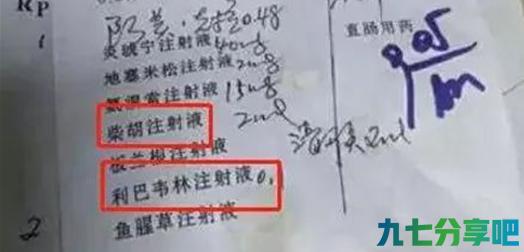 RP
1
阿莫·克拉0.48
直肠用药
炎琥宁注射液 40mg
地塞米松注射液 2mg
氨溴索注射液 15mg
柴胡注射液 2ml
板兰根注射液
利巴韦林注射液 0.
2
鱼腥草注射液
九七分享吧